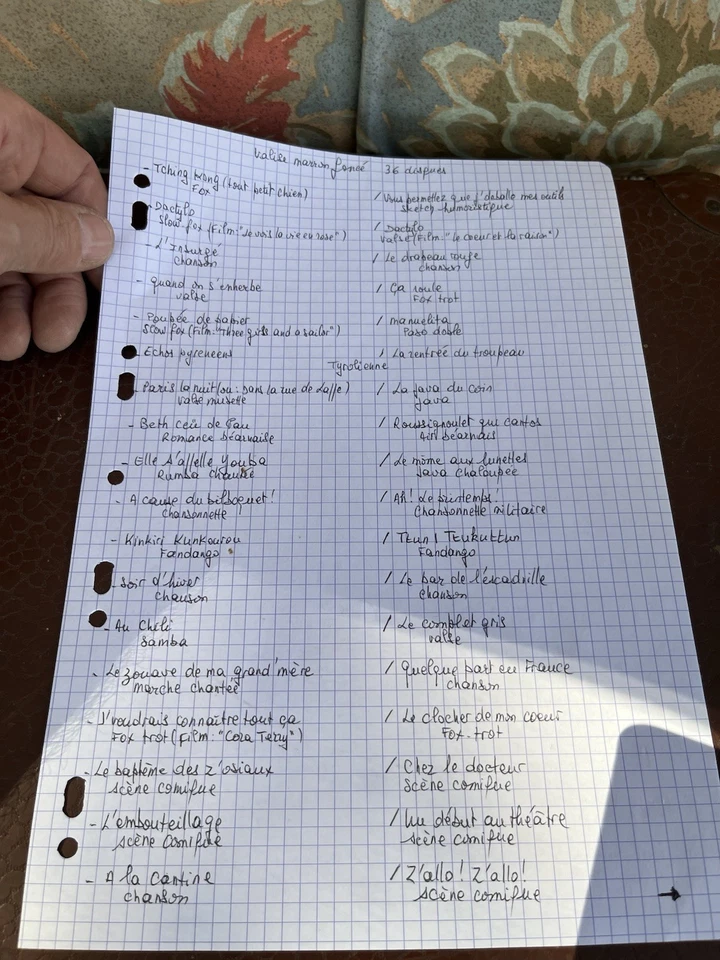 Valise marron foncé 36 disques
- Tching Kong (tout petit chien) / Vous permettez que j'déballe mes outils
Fox sketch humoristique
- Dactylo / Dactylo
Slow fox (Film: "Je vois la vie en rose") valse (Film: "le coeur et la raison")
- L'Insurgé / Le drapeau rouge
chanson chanson
- Quand on s'enherbe / Ça roule
valse Fox trot
- Poupée de papier / Manuelita
Slow fox (Film: "Three girls and a sailor") Paso doble
- Echos pyreneens / La rentrée du troupeau
Tyrolienne
- Paris la nuit (ou: Dans la rue de Lappe) / La java du coin
valse musette Java
- Beth ceü de Pau / Roussignoulet que cantos
Romance béarnaise Airs béarnais
- Elle s'appelle Youba / Le môme aux lunettes
Rumba chantée Java chaloupée
- A cause du bilboquet! / Ah! Le printemps!
chansonnette Chansonnette militaire
- Kinkiri Kunkourou /
Fandango Fandango
- Soir d'hiver / Le bar de l'escadrille
chanson chanson
- Au Chili / Le complet gris
Samba valse
- Le zouave de ma grand'mère / Quelque part en France
marche chantée chanson
- J'voudrais connaître tout ça / Le clocher de mon coeur
Fox trot (Film: "Cora Terry") Fox-trot
- Le baptême des z'osiaux / Chez le docteur
scène comique scène comique
- L'embouteillage / Un début au théâtre
scène comique scène comique
- A la cantine / Z'allo! Z'allo!
chanson scène comique →